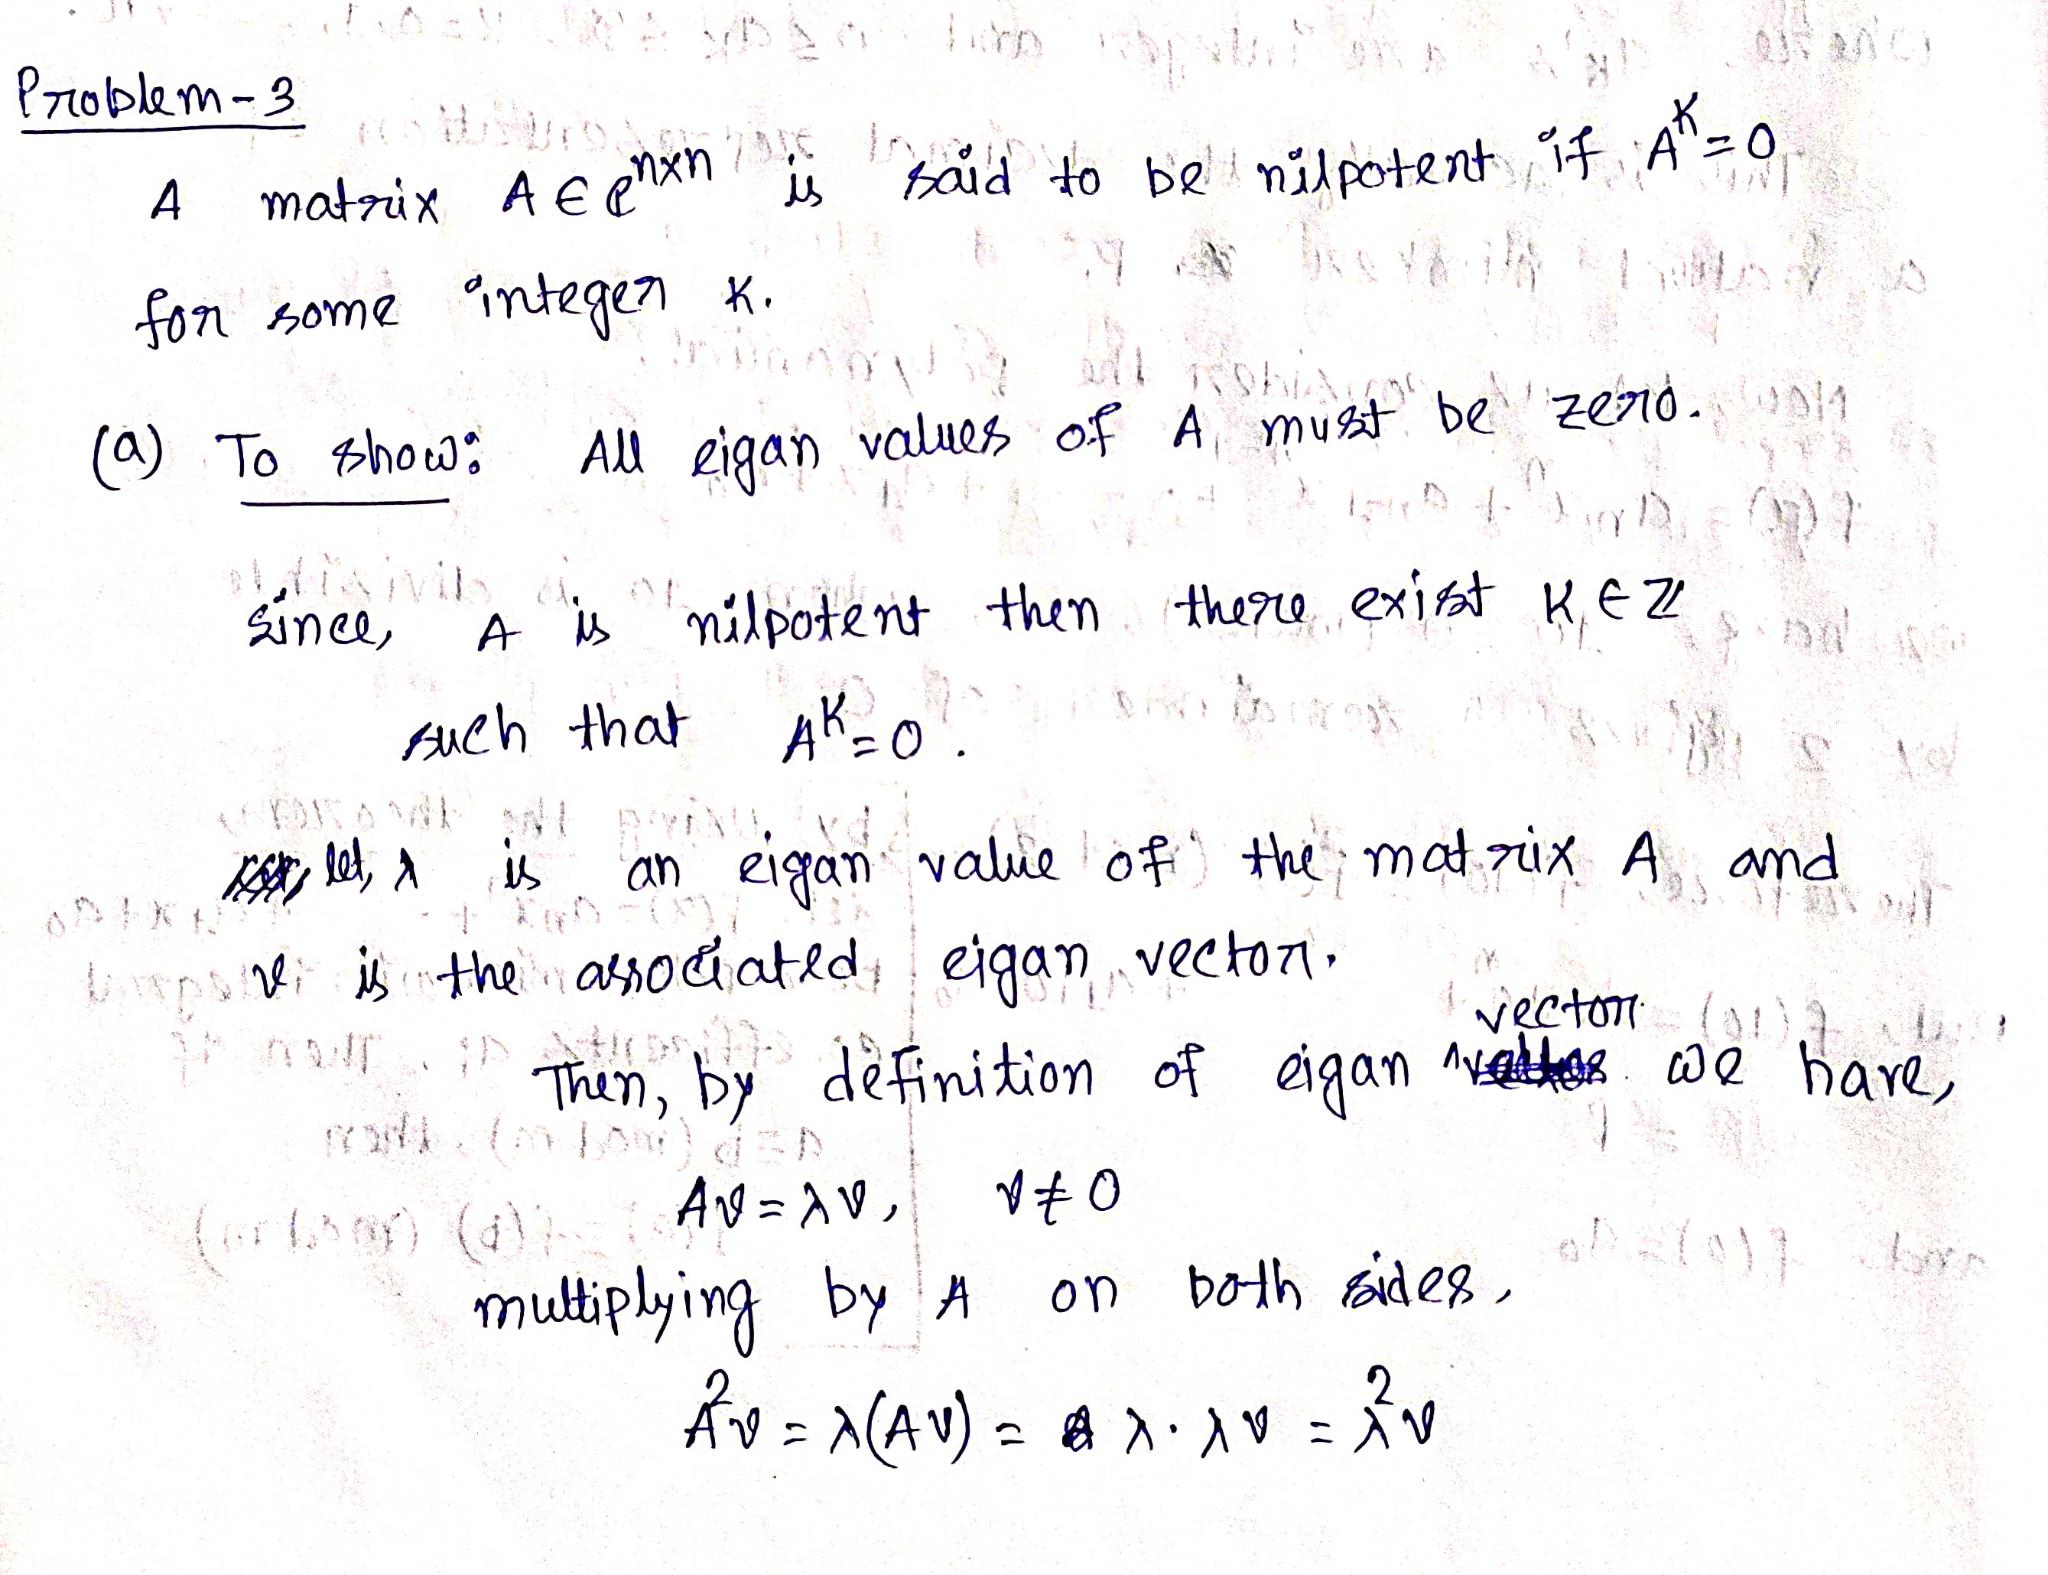 Problem-3
A matrix A ∈ ℂ^{n×n} is said to be nilpotent if A^K=0
for some integer K.
(a) To show: All eigan values of A must be zero.
since, A is nilpotent then there exist K ∈ ℤ
such that A^K=0.
let, λ is an eigan value of the matrix A and
v is the associated eigan vector.
Then, by definition of eigan vector we have,
Av=λv, v≠0
multiplying by A on both sides,
A²v = λ(Av) = λ·λv = λ²v